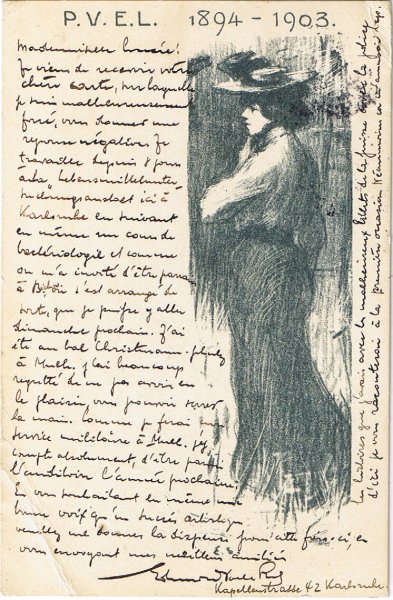 P.V.E.L. 1894-1903.
Mademoiselle
Je viens de recevoir votre
chère carte, sur laquelle
je suis malheureusement
forcé, vous donner une
réponse négative. Je
travaille depuis 8 jours
à la "Lebensmittelunter-
suchungsanstalt ici à
Karlsruhe en suivant
en même un cours de
bactériologie et comme
on m'a invité d'être
à s'est arrangé de
sorte, que je puisse y aller
Dimanche prochain. J'ai
été au bal Christmann.
à Mulh. j'ai beaucoup
regretté de ne pas avoir eu
le plaisir, vous pouvoir serrer
la main. Comme je ferai mon
service militaire à Mulh. j'y
compte absolument, d'être parmi
l'auditoire l'année prochaine.
En vous souhaitant en même une
bonne voix qu'un succès artistique
veuillez me donner la dispense pour cette fois-ci, en
vous envoyant mes meilleures amitiés
Kapellenstrasse 42 Karlsruhe.
les que j'avais avec les malheureux billets de la
d'ici je vous raconterai à la première occasion